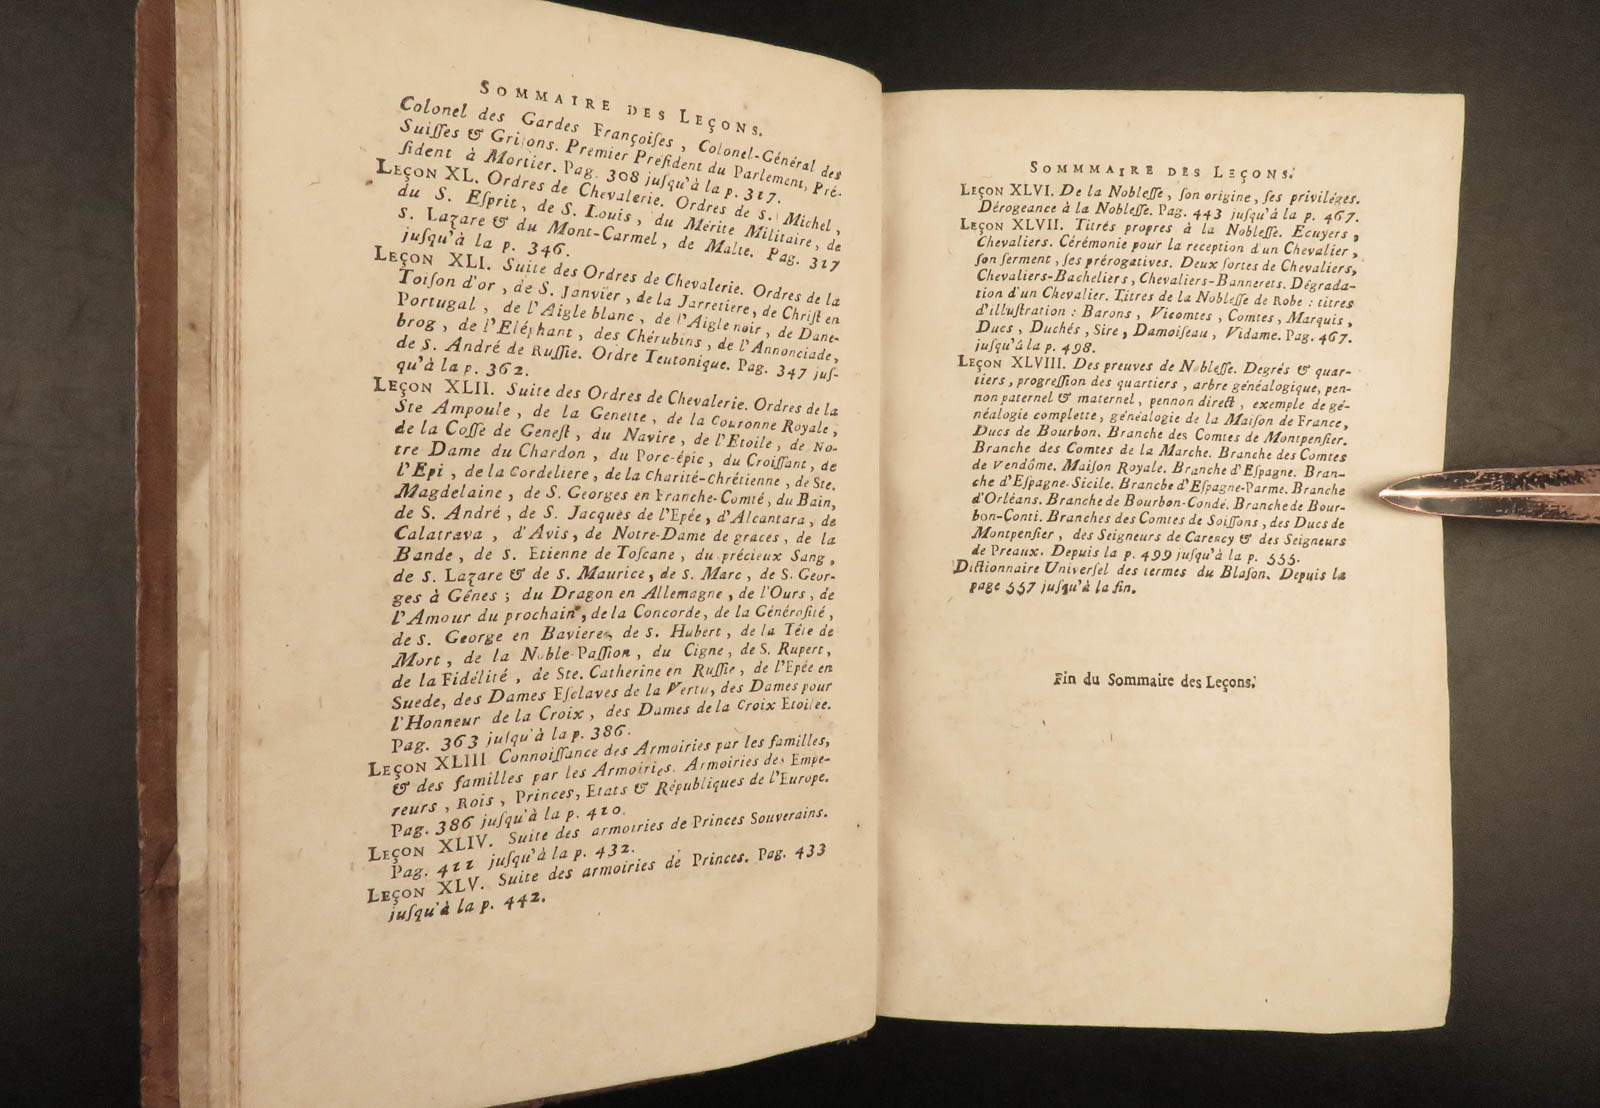 SOMMAIRE DES LEÇONS.
Colonel des Gardes Françoiſes, Colonel-Général des
Suiſſes & Griſons. Premier Préſident du Parlement, Pré-
ſident à Mortier. Pag. 308 juſqu'à la p. 317.
LEÇON XL. Ordres de Chevalerie. Ordres de S. Michel,
du S. Eſprit, de S. Louis, du Mérite Militaire, de
S. Lazare & du Mont-Carmel, de Malte. Pag. 317
juſqu'à la p. 346.
LEÇON XLI. Suite des Ordres de Chevalerie. Ordres de la
Toiſon d'or, de S. Janvier, de la Jarretiere, de Chriſt en
Portugal, de l'Aigle blanc, de l'Aigle noir, de Dane-
brog, de l'Eléphant, des Chérubins, de l'Annonciade,
de S. André de Ruſſie. Ordre Teutonique. Pag. 347 juſ-
qu'à la p. 362.
LEÇON XLII. Suite des Ordres de Chevalerie. Ordres de la
Ste Ampoule, de la Genette, de la Couronne Royale,
de la Coſſe de Geneſt, du Navire, de l'Etoile, de No-
tre Dame du Chardon, du Porc-épic, du Croiſſant, de
l'Epi, de la Cordeliere, de la Charité-chrétienne, de Ste.
Magdelaine, de S. Georges en Franche-Comté, du Bain,
de S. André, de S. Jacques de l'Epée, d'Alcantara, de
Calatrava, d'Avis, de Notre-Dame de graces, de la
Bande, de S. Etienne de Toſcane, du précieux Sang,
de S. Lazare & de S. Maurice, de S. Marc, de S. Geor-
ges à Gênes; du Dragon en Allemagne, de l'Ours, de
l'Amour du prochain, de la Concorde, de la Généroſité,
de S. George en Baviere, de S. Hubert, de la Tête de
Mort, de la Noble-Paſſion, du Cigne, de S. Rupert,
de la Fidélité, de Ste. Catherine en Ruſſie, de l'Epée en
Suede, des Dames Eſclaves de la Vertu, des Dames pour
l'Honneur de la Croix, des Dames de la Croix Etoilée.
Pag. 363 juſqu'à la p. 386.
LEÇON XLIII Connoiſſance des Armoiries par les familles,
& des familles par les Armoiries. Armoiries des Empe-
reurs, Rois, Princes, Etats & Républiques de l'Europe.
Pag. 386 juſqu'à la p. 410.
LEÇON XLIV. Suite des armoiries de Princes Souverains.
Pag. 411 juſqu'à la p. 432.
LEÇON XLV. Suite des armoiries de Princes. Pag. 433
juſqu'à la p. 442.
SOMMMAIRE DES LEÇONS.
LEÇON XLVI. De la Nobleſſe, ſon origine, ſes priviléges.
Dérogeance à la Nobleſſe. Pag. 443 juſqu'à la p. 467.
LEÇON XLVII. Titres propres à la Nobleſſe. Ecuyers,
Chevaliers. Cérémonie pour la réception d'un Chevalier,
ſon ſerment, ſes prérogatives. Deux ſortes de Chevaliers,
Chevaliers-Bacheliers, Chevaliers-Bannerets. Dégrada-
tion d'un Chevalier. Titres de la Nobleſſe de Robe: titres
d'illuſtration: Barons, Vicomtes, Comtes, Marquis,
Ducs, Duchés, Sire, Damoiſeau, Vidame. Pag. 467.
juſqu'à la p. 498.
LEÇON XLVIII. Des preuves de Nobleſſe. Degrés & quar-
tiers, progreſſion des quartiers, arbre généalogique, pen-
non paternel & maternel, pennon direct, exemple de gé-
néalogie complette, généalogie de la Maiſon de France,
Ducs de Bourbon. Branche des Comtes de Montpenſier.
Branche des Comtes de la Marche. Branche des Comtes
de Vendôme. Maiſon Royale. Branche d'Eſpagne. Bran-
che d'Eſpagne-Sicile. Branche d'Eſpagne-Parme. Branche
d'Orléans. Branche de Bourbon-Condé. Branche de Bour-
bon-Conti. Branches des Comtes de Soiſſons, des Ducs de
Montpenſier, des Seigneurs de Carency & des Seigneurs
de Preaux. Depuis la p. 499 juſqu'à la p. 555.
Dictionnaire Univerſel des termes du Blaſon. Depuis la
page 557 juſqu'à la fin.
Fin du Sommaire des Leçons.